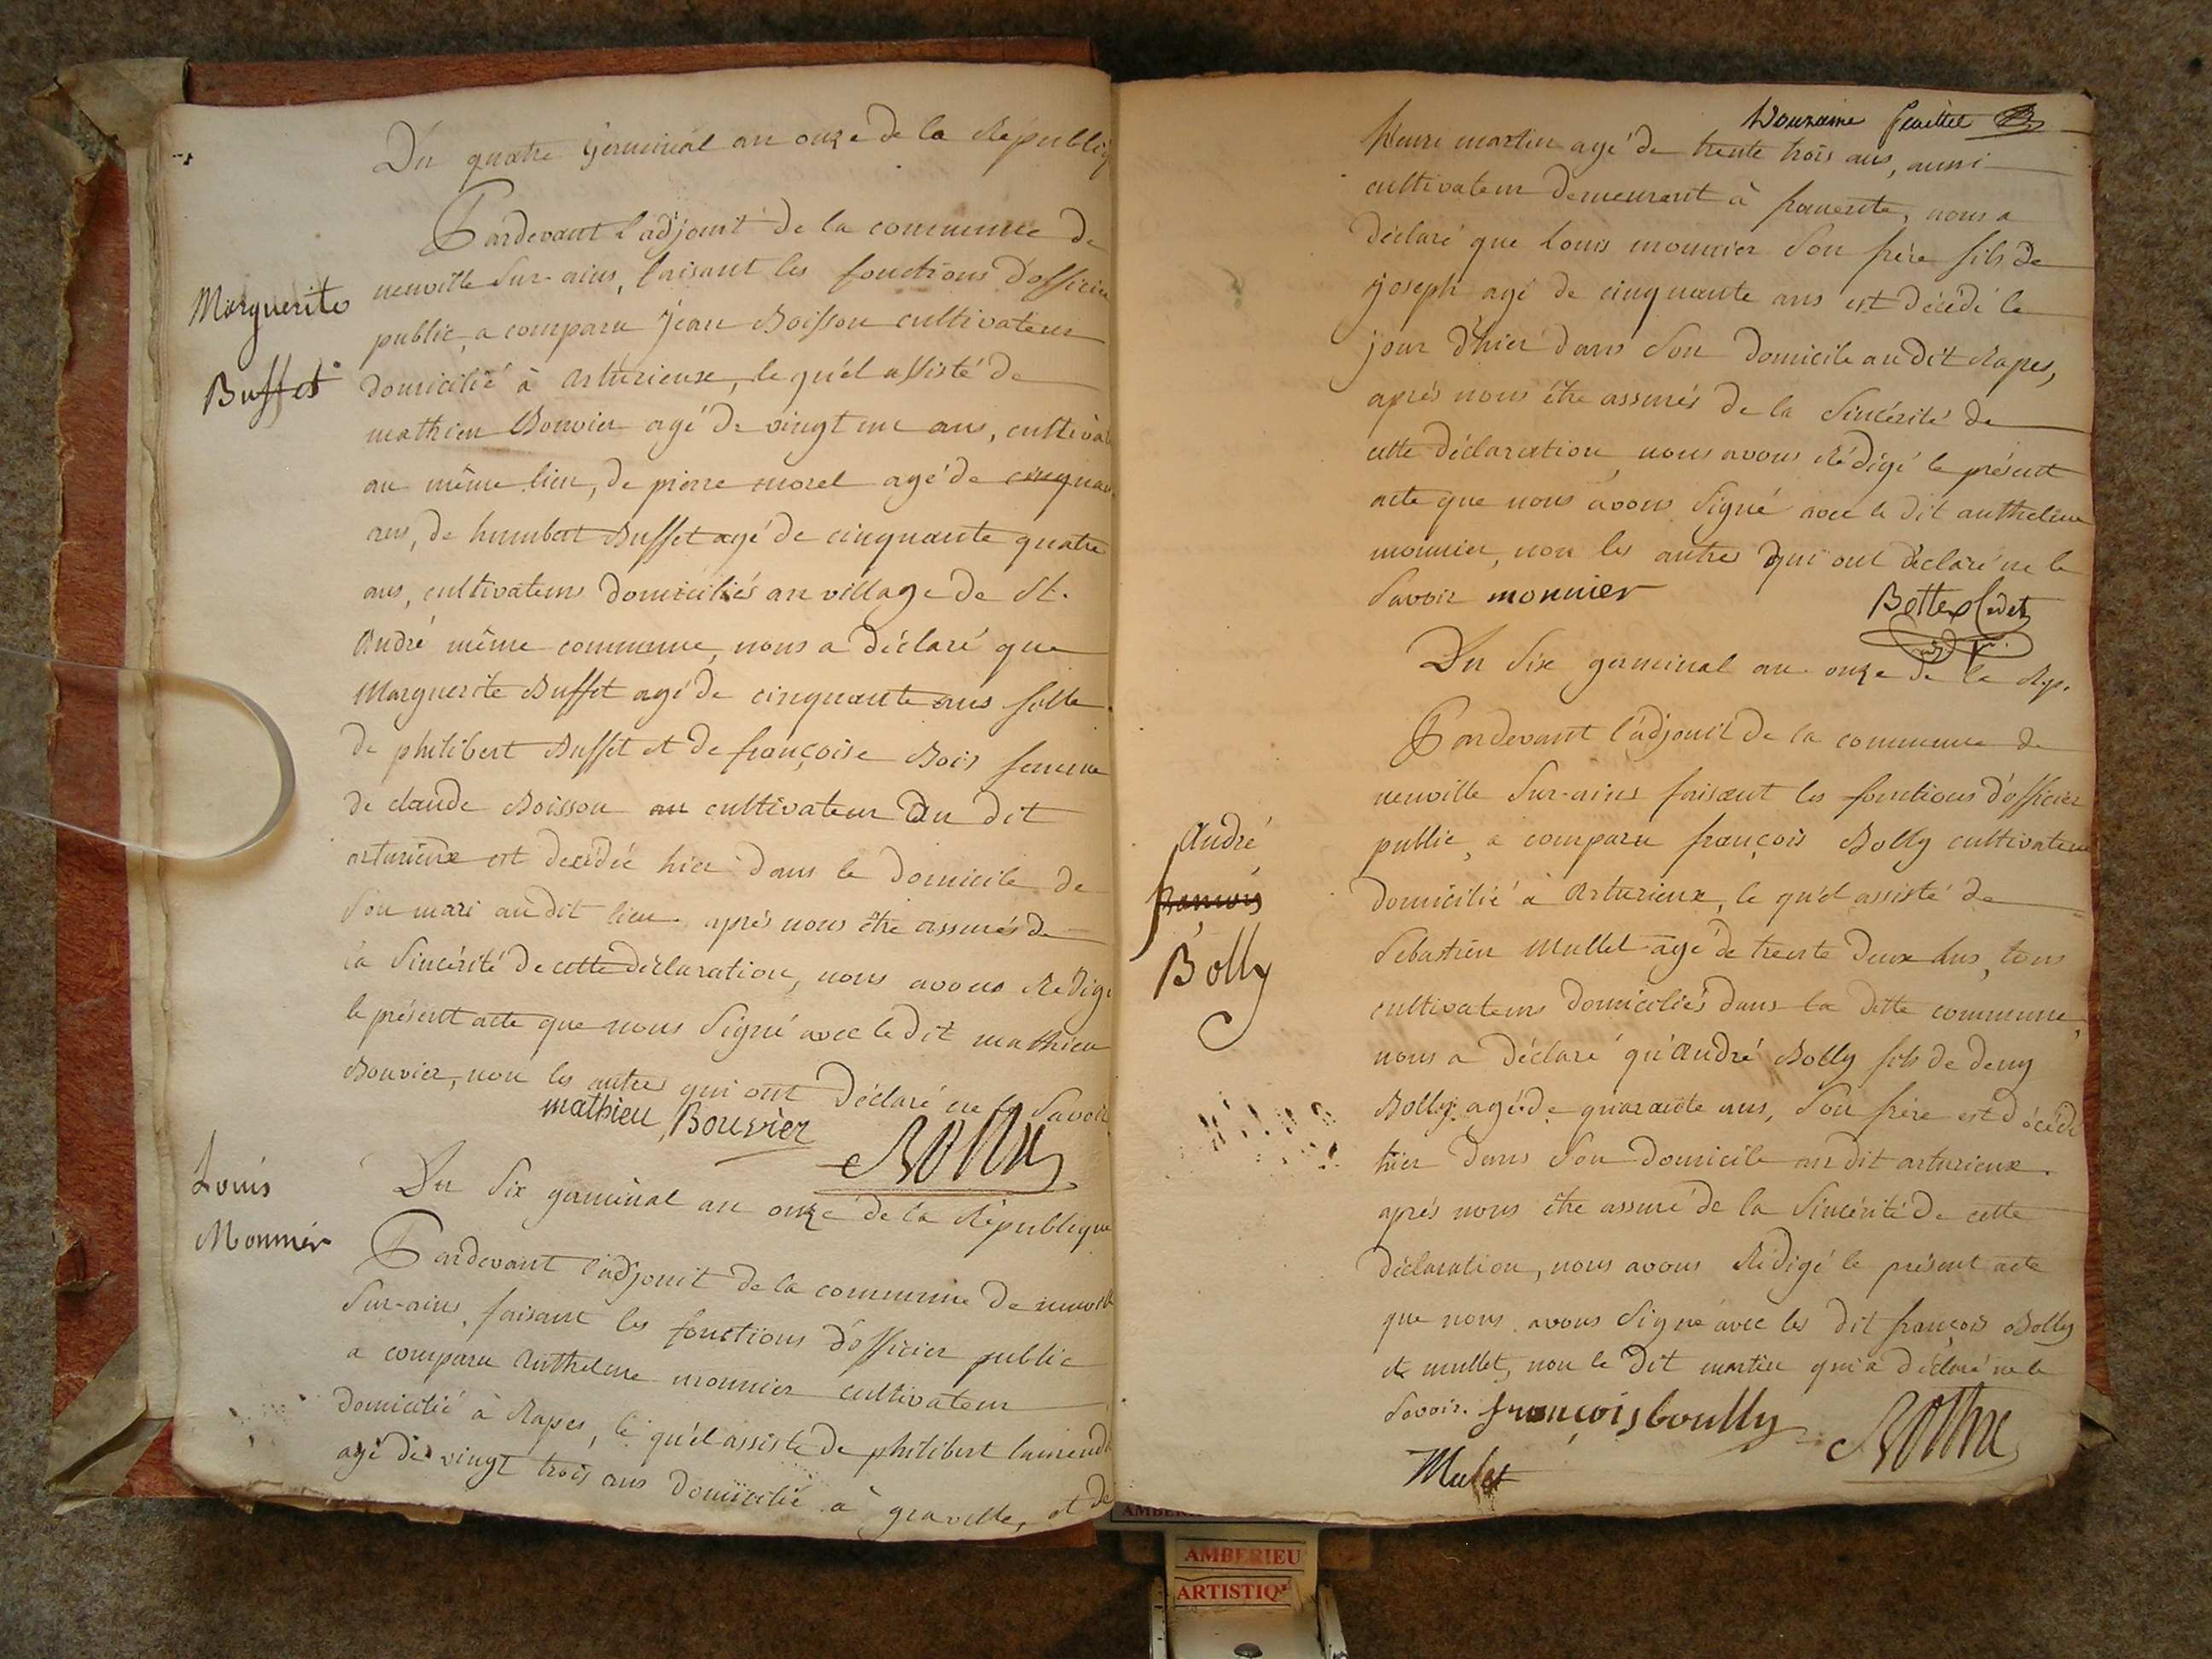 Du quatre Germinal an onze de la Républiq
Pardevant l'adjoint de la commune de
neuville Sur-ains, faisant les fonctions d'officier
public, a comparu Jean Boisson cultivateur
domicilié à arturieux, le quél assisté de
mathieu Bouvier agé de vingt un ans, cultivat
au même lieu, de pierre morel agé de cinquan
ans, de humbert Buffet agé de cinquante quatre
ans, cultivateurs domiciliés au village de St.
André même commune, nous a déclaré que
Marguerite Buffet agé de cinquante ans fille
de philibert Buffet et de françoise Bois femme
de claude Boisson cultivateur du dit
arturieux est decédée hier dans le domicile de
Son mari au dit lieu. aprés nous être assurés de
la Sincérité de cette déclaration, nous avons Rédigé
le présent acte que nous Signé avec le dit mathieu
Bouvier, non les autres qui ont déclaré ne le Savoir
mathieu Bouvier
Marguerite
Buffet
Louis
Monnier
Du Six germinal an onze de la République
Pardevant l'adjouit de la commune de neuville
Sur-ains, faisant les fonctions d'officier public
a comparu Anthelme monnier cultivateur
domicilié à Rapes, le quél assisté de philibert
agé de vingt trois ans domicilié à gravelle, et de
feuillet
henri martin agé de trente trois ans, aussi
cultivateur demeurant à, nous a
déclaré que Louis monnier Son frère fils de
joseph agé de cinquante ans est décédé le
jour d'hier dans Son domicile au dit Rapes,
aprés nous être assurés de la Sincérité de
cette déclaration, nous avons Rédigé le présent
acte que nous avons Signé avec le dit anthelme
monnier, non les autres qui ont déclaré ne le
Savoir monnier
Du Six germinal an onze de la Rép.
Pardevant l'adjouit de la commune de
neuville Sur-ains faisant les fonctions d'officier
public, a comparu françois Bolly cultivateur
domicilié à Arturieux, le quél assisté de
Sébastien Mullet agé de trente deux ans, tous
cultivateurs domiciliés dans la ditte commune,
nous a déclaré qu'André Bolly fils de deny
Bolly agé de quarante ans, Son frére est décédé
hier dans Son domicile au dit arturieux.
aprés nous être assuré de la Sincérité de cette
déclaration, nous avons Rédigé le présent acte
que nous avons Signé avec les dit françois Bolly
et mullet, non le dit martin qui a déclaré ne le
Savoir. françois boully
Mulet
André
françois
Bolly
AMBERIEU
ARTISTIQ